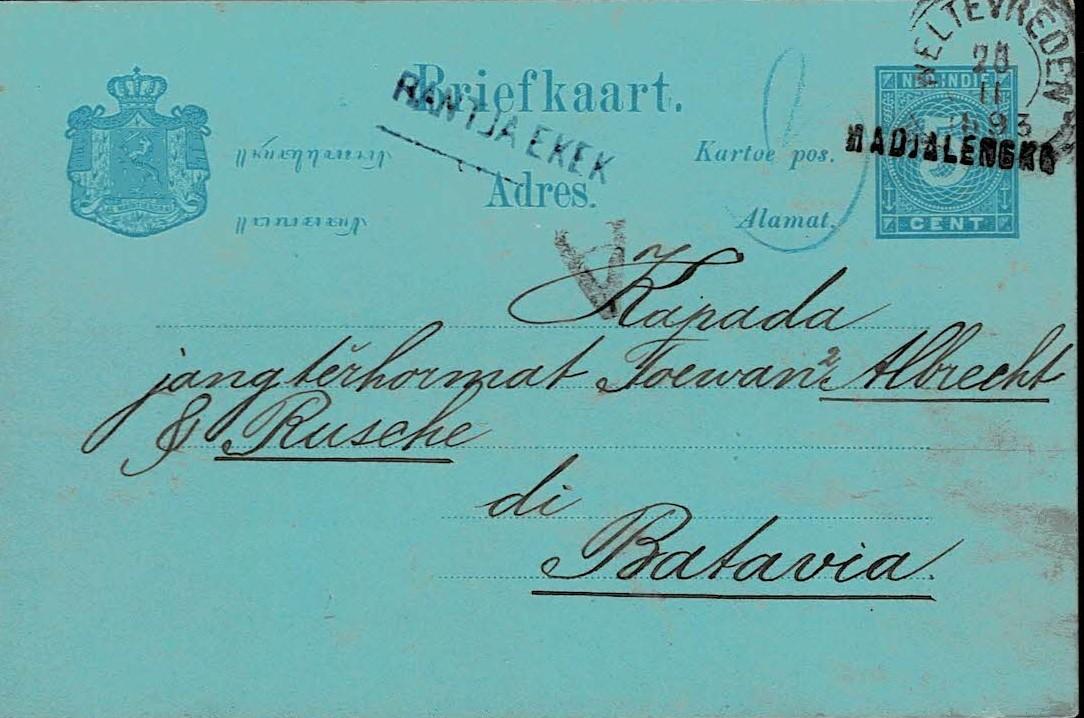 Briefkaart.
RANTJA EKEK
Kartoe pos.
Adres.
Alamat.
WELTEVREDEN
28
11
1893
NED. INDIE
5
CENT
MADJALENGKA
A
Kapada
jang têrhormat Toewan2 Albrecht
& Rusche
di
Batavia.